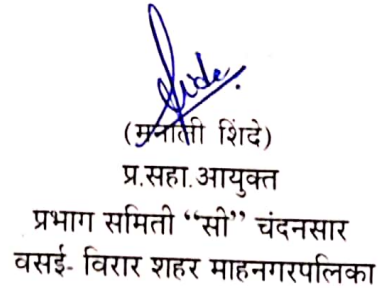 (मनाली शिंदे)
प्र.सहा.आयुक्त
प्रभाग समिती “सी” चंदनसार
वसई- विरार शहर माहनगरपलिका